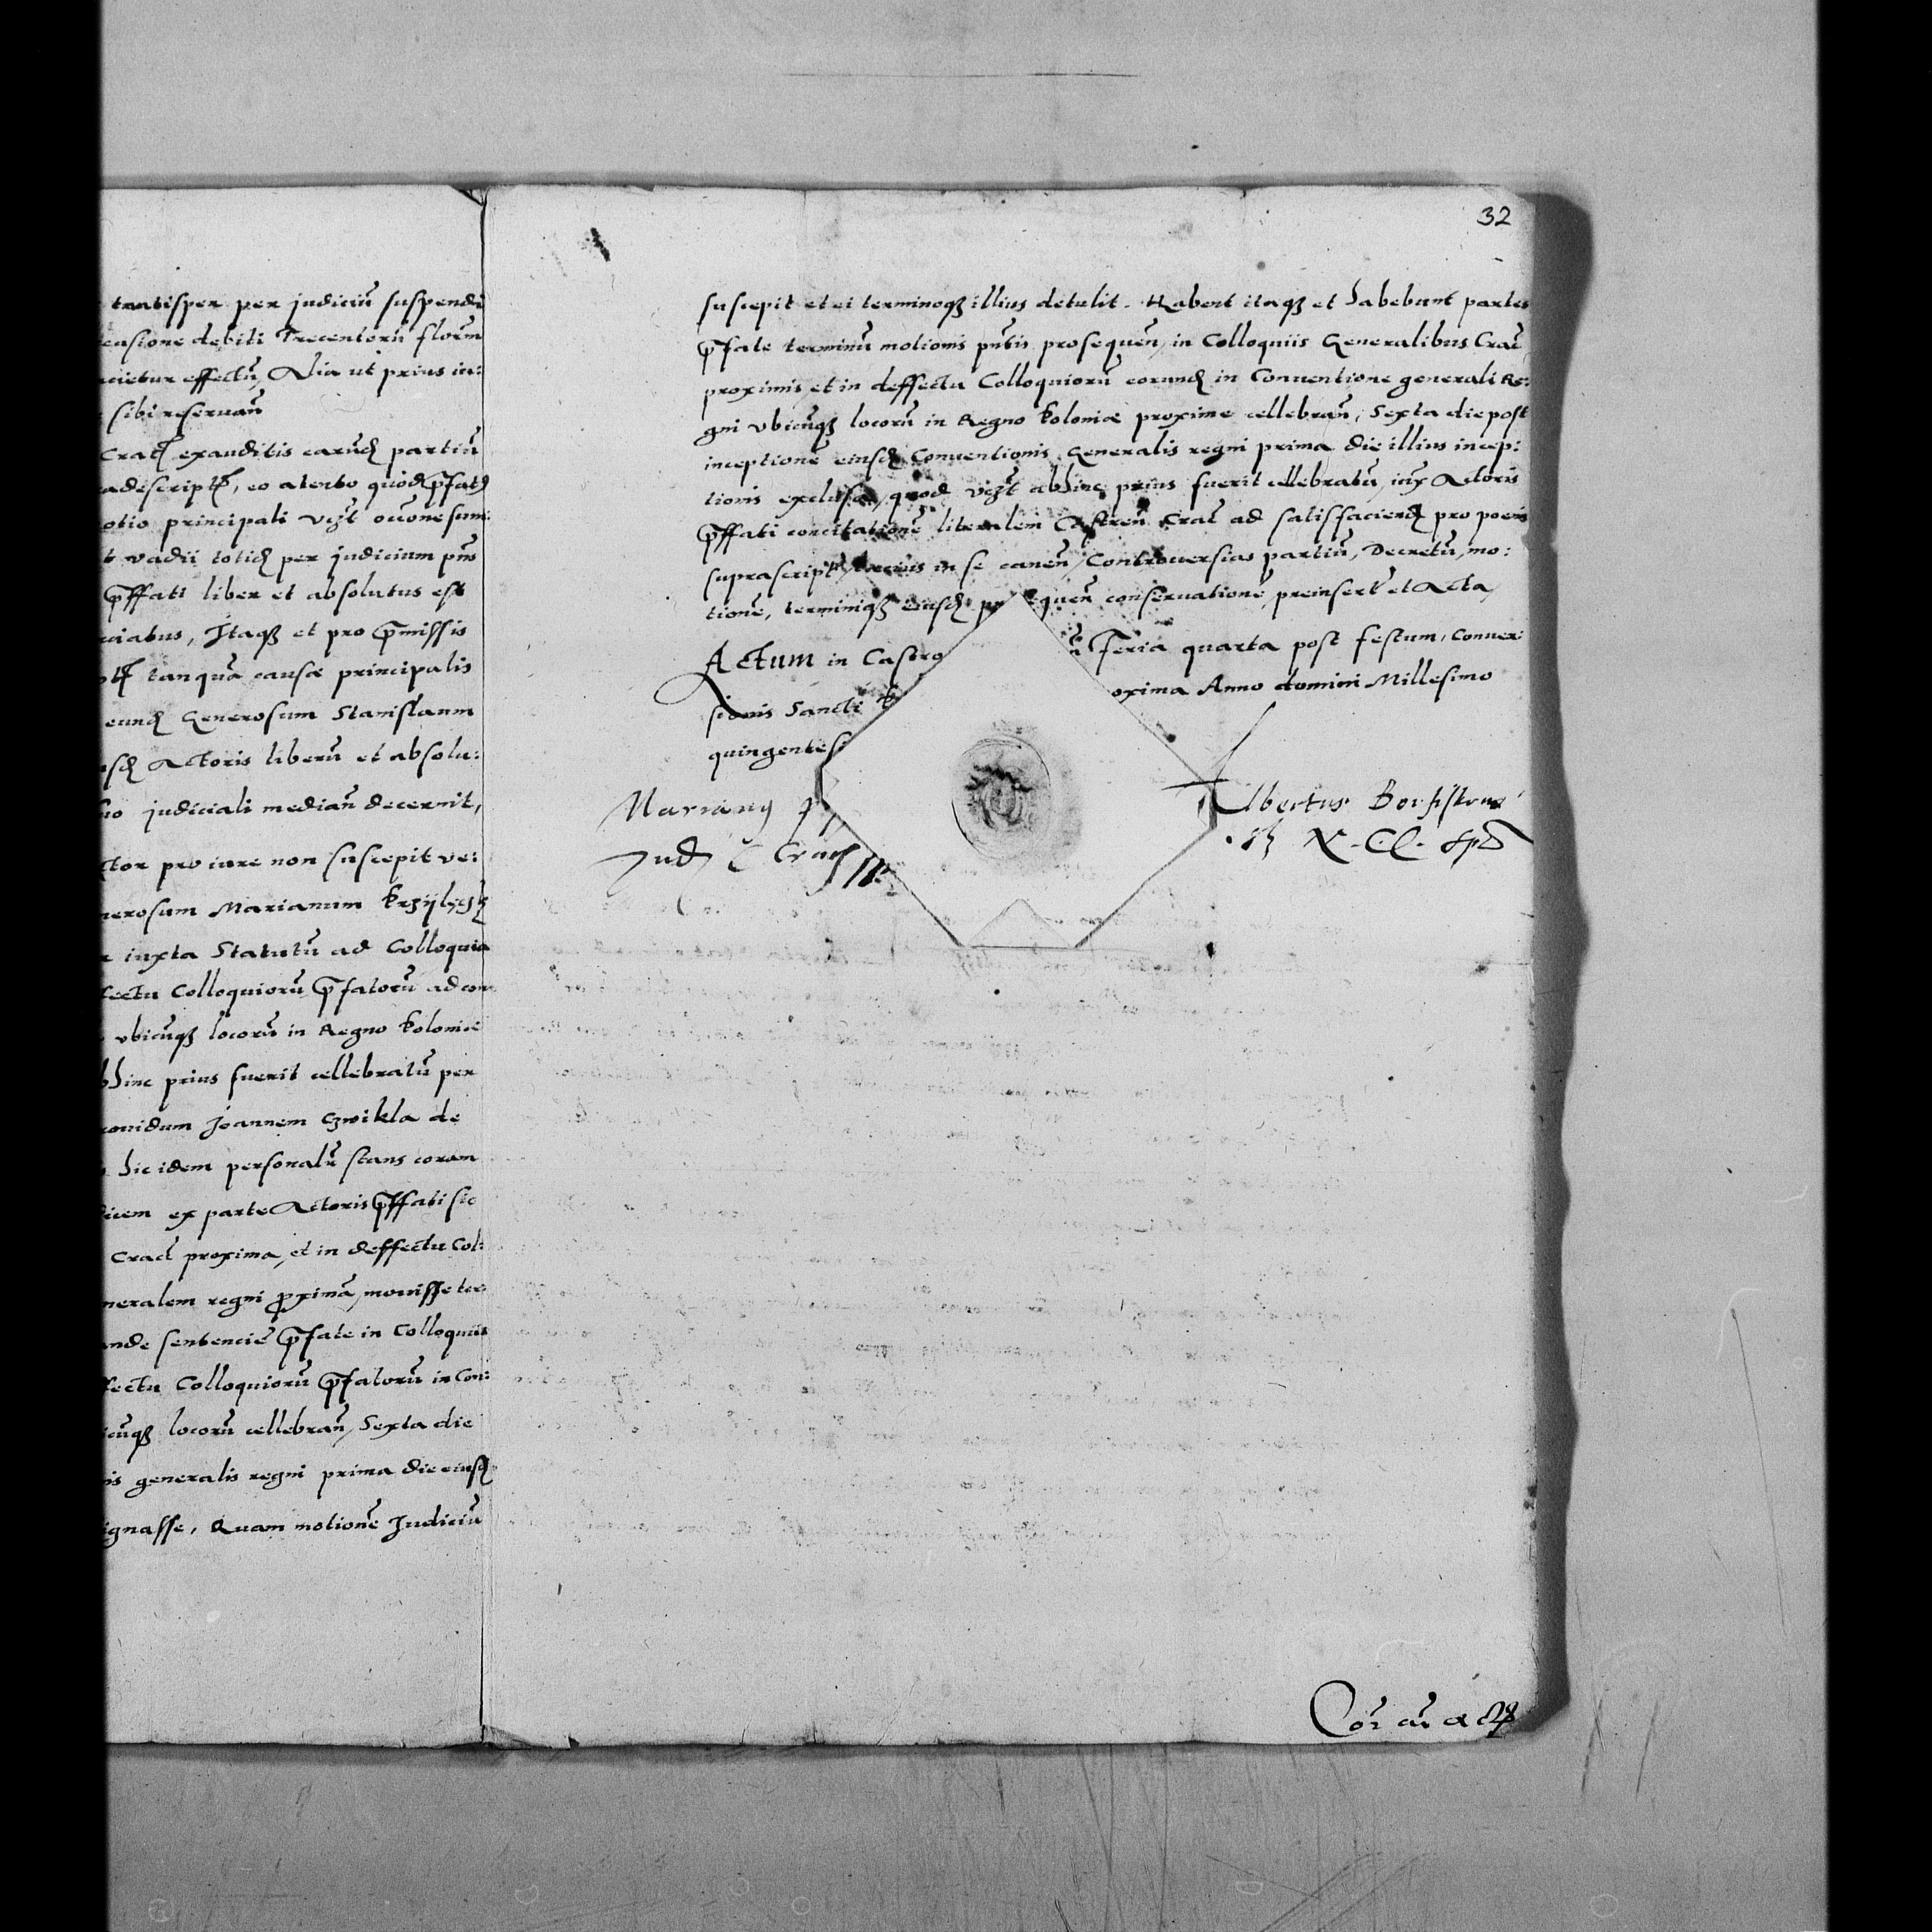 tratisper per judiciū suspendi
casione debiti Trecentorū floēm
effectū, Alia ut prius in:
sibi reservan̄
Crac̄ exauditis earūd partiū
adescript, eo atento quod p̄fat
otio principali vizt
vadii totid per judicium pn̄s
p̄ffati liber et absolutus est
ciatus, Itaqȝ et pro p̄missis
tanquā causæ principalis
eund Generosum Stanislaum
Actoris liberū et absolu:
judiciali median̄ decernit,
ctor pro iure non suscepit ve:
nerosum Marianum
iuxta Statutū ad Colloquia
fectu Colloquiorū p̄fatorū ad con
ubicūqȝ locorū in Regno Poloniæ
bhinc prius fuerit cellebratū per
rovidum Joannem Czwikla de
hic idem personalr̄ stans coram
dicem ex parte Actoris p̄ffati sic
Crac̄ proxima, et in deffectu Col:
neralem regni p̄ximā, movisse ter:
ande sentencie p̄fate in Colloquiis
fectu Colloquiorū p̄fatorū in Con:
icūqȝ locorū cellebran̄, Sexta die
nis generalis regni prima die eiusd
ignasse, Quam motionē Judiciū
32
suscepit et ei terminoqȝ illius detulit. Habent itaqȝ et habebunt partes
p̄fate terminū motionis pn̄tis prosequen̄, in Colloquiis Generalibus Crac̄
proximis et in deffectu Colloquiorū eorund in Conventione generali Re:
gni ubicūqȝ locorū in Regno Poloniæ proxime cellebran̄, Sexta die post
inceptionē eiusd Conventionis Generalis regni prima die illius incep:
tionis exclusa, quod vizt abhinc prius fuerit cellebratū, iux Actoris
p̄ffati concitationē literalem Castren̄ Crac̄ ad satisfaciend pro poenis
suprascript in se canen̄, Controversias partiū, Decretū, mo:
tionē, terminiqȝ eiusd pr equen̄ conservationē preinsert et Acta,
Actum in Castro Feria quarta post festum, Conver:
sionis Sancti oxima Anno domini Millesimo
quingentesi
Marianȝ
Jud Crac̄
Albertus
Cor̄ cū act